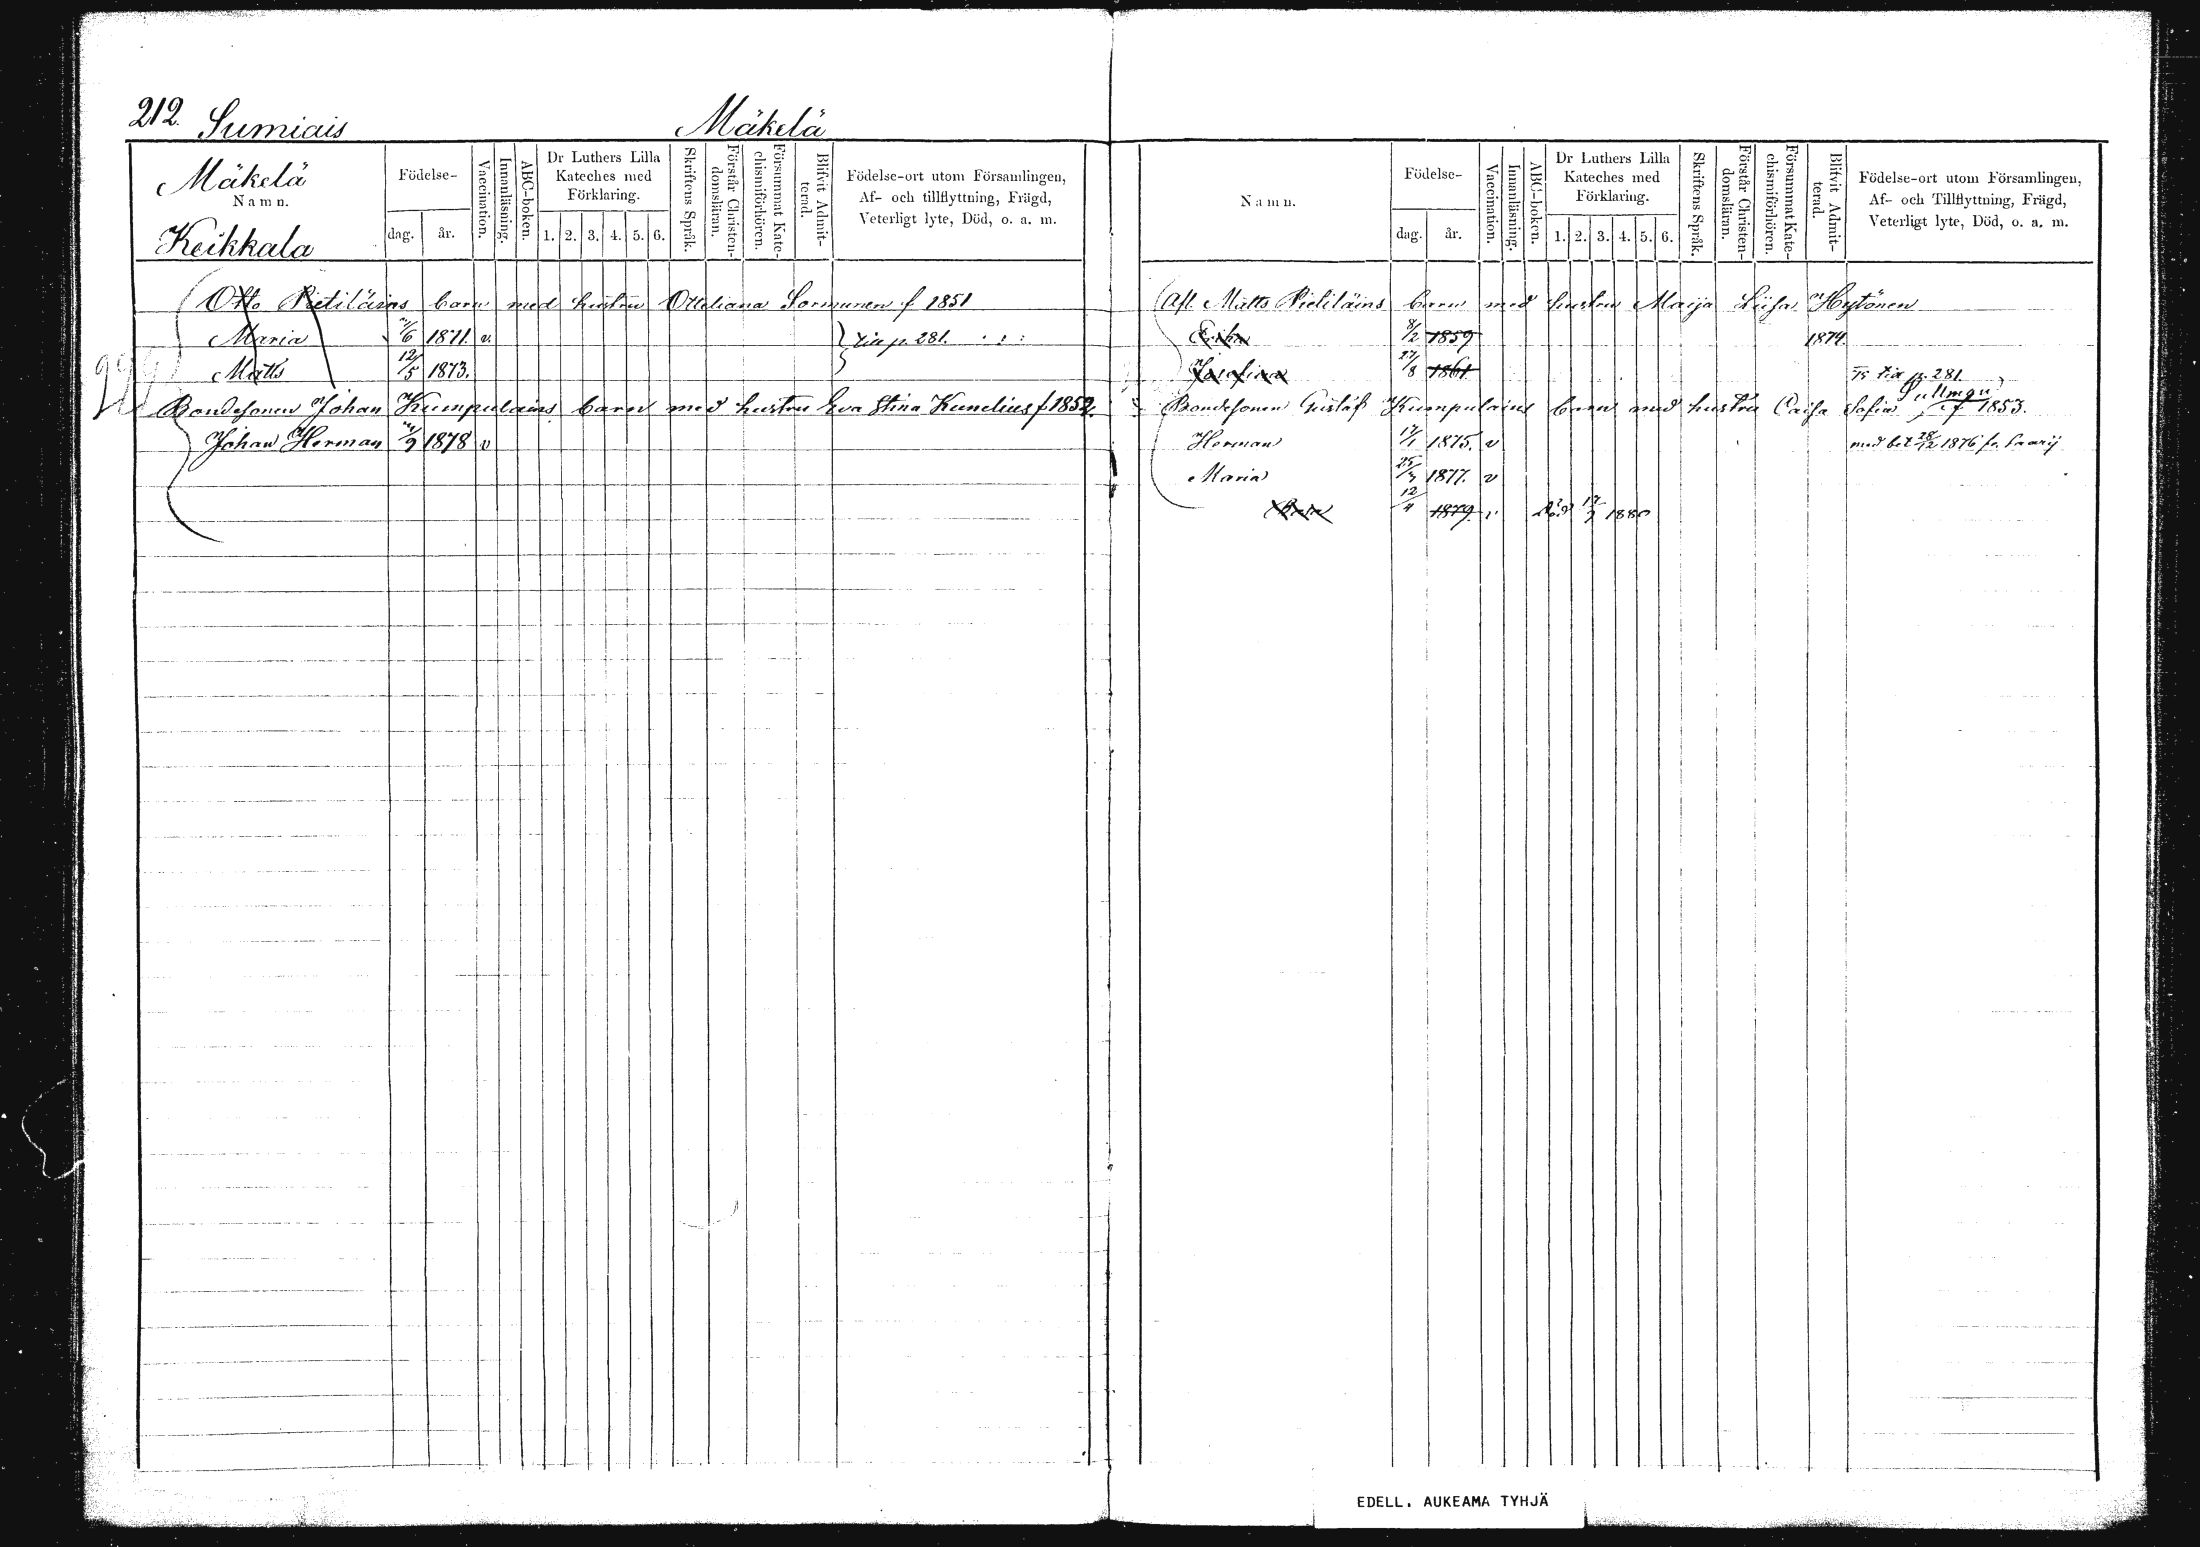 212. Sumiais Mäkelä
Mäkelä
Namn.
Keikkala
Födelse-
dag. år.
Vaccination.
Innanläsning.
ABC-boken.
Dr Luthers Lilla
Kateches med
Förklaring.
1. 2. 3. 4. 5. 6.
Skriftens Språk.
Förstår Christen-
domsläran.
Försummat Kate-
chismiförhören.
Blifvit Admit-
terad.
Födelse-ort utom Församlingen,
Af- och tillflyttning, Frägd,
Veterligt lyte, Död, o. a. m.
Otto Pietiläins barn med hustru Otteliana Sormunen f 1851
Maria 1871. v. p. 281.
Matts 12/5 1873.
Bondesonen Johan Kumpulains barn med hustru Eva Stina Kunelius f 1852.
Johan Herman 1878 v
Namn.
Födelse-
dag. år.
Vaccination.
Innanläsning.
ABC-boken.
Dr Luthers Lilla
Kateches med
Förklaring.
1. 2. 3. 4. 5. 6.
Skriftens Språk.
Förstår Christen-
domsläran.
Försummat Kate-
chismiförhören.
Blifvit Admit-
terad.
Födelse-ort utom Församlingen,
Af- och Tillflyttning, Frägd,
Veterligt lyte, Död, o. a. m.
Afl. Matts Pietiläins barn med hustru Maija Liisa Hytönen
Erika 8/2 1859 1874
Josefina 27/8 1861 p. 281.
Bondesonen Gustaf Kumpulains barn med hustru Caisa Sofia Pullman f 1853.
Herman 17/1 1875. v med bet 28/12 1876 fr. Saarij
Maria 1877. v
12/4 1879. v Död 1880
EDELL. AUKEAMA TYHJÄ